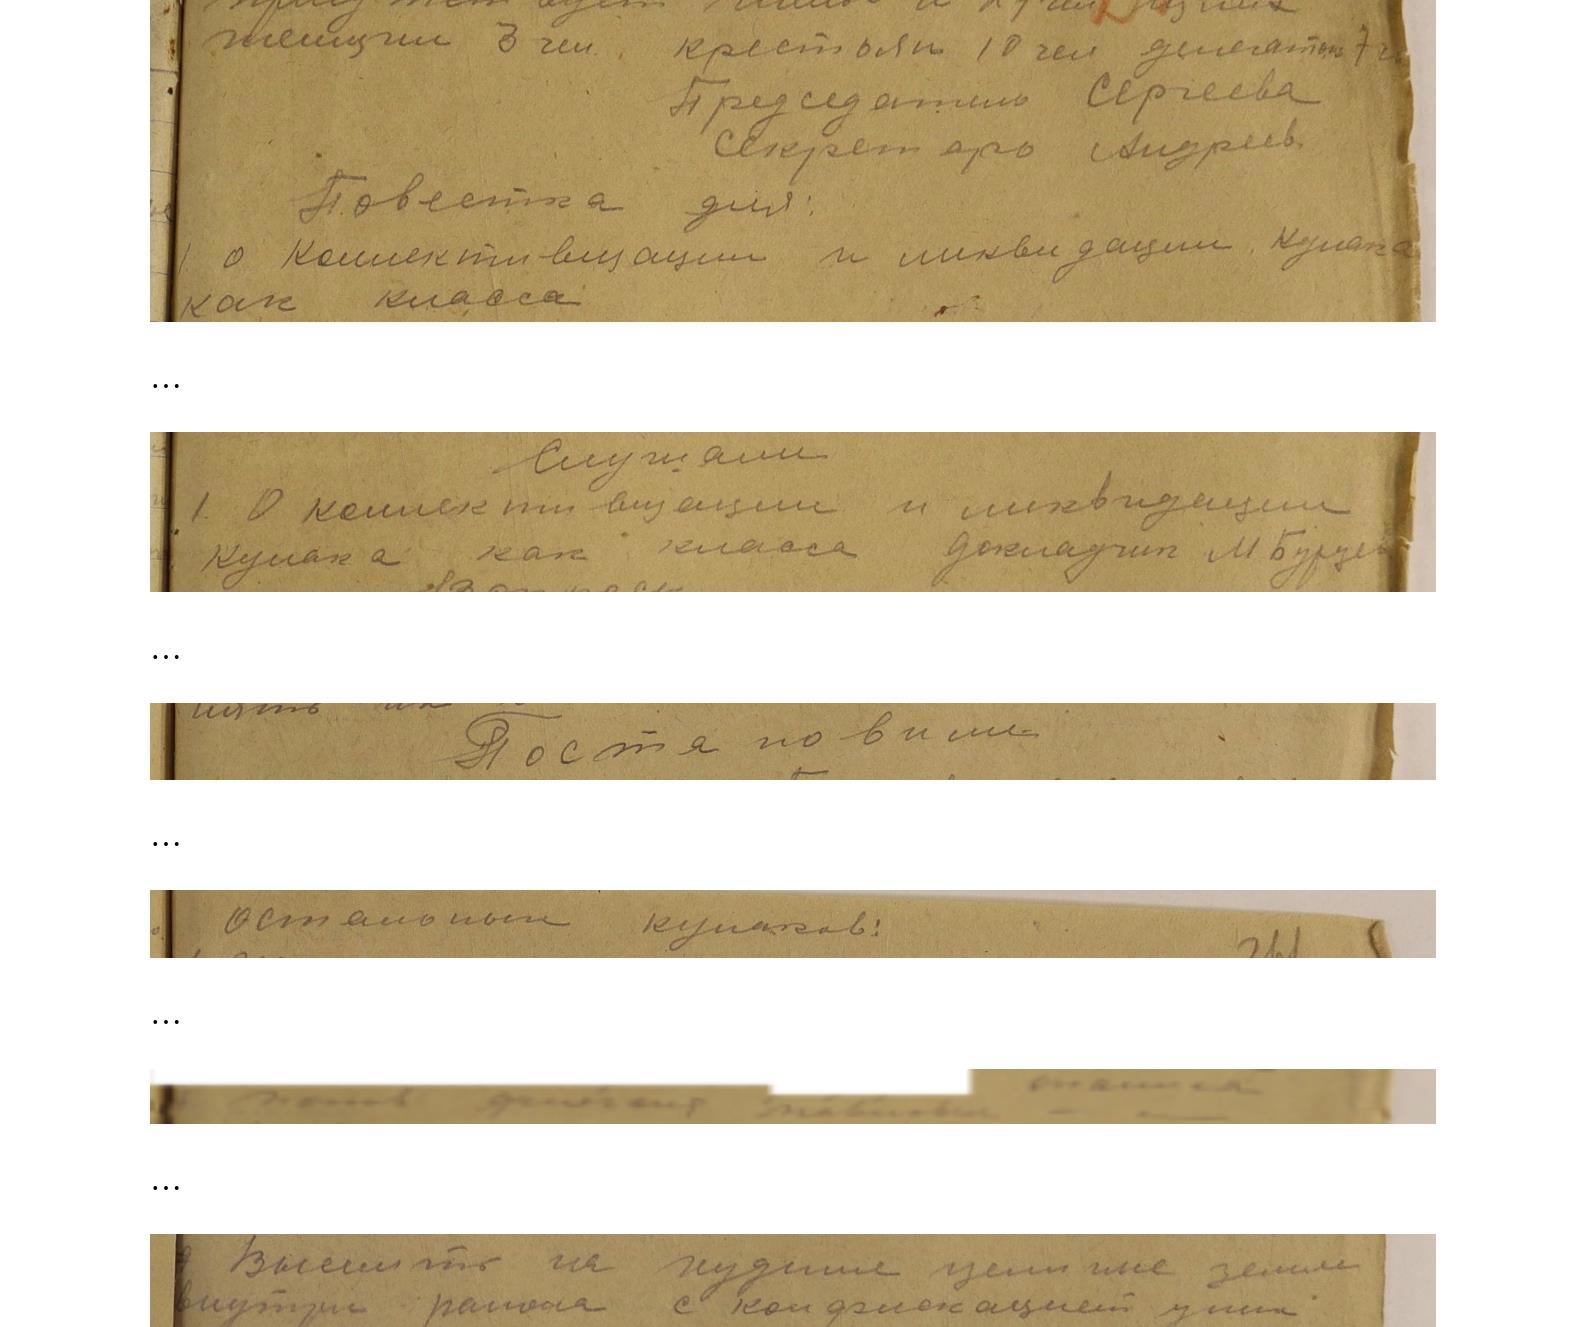 женщин 3 чел. крестьян 10 чел делегаток 7
Председатель Сергеева
Секретарь Андреев
Повестка дня:
1 о Коллективизации и ликвидации Кулака
как класса
...
Слушали
1. О коллективизации и ликвидации
Кулака как класса докладчик М Бурцев
...
Постановили
...
Остальных кулаков:
...
...
Выселить на худшие целинные земли
внутри района с конфискацией у них